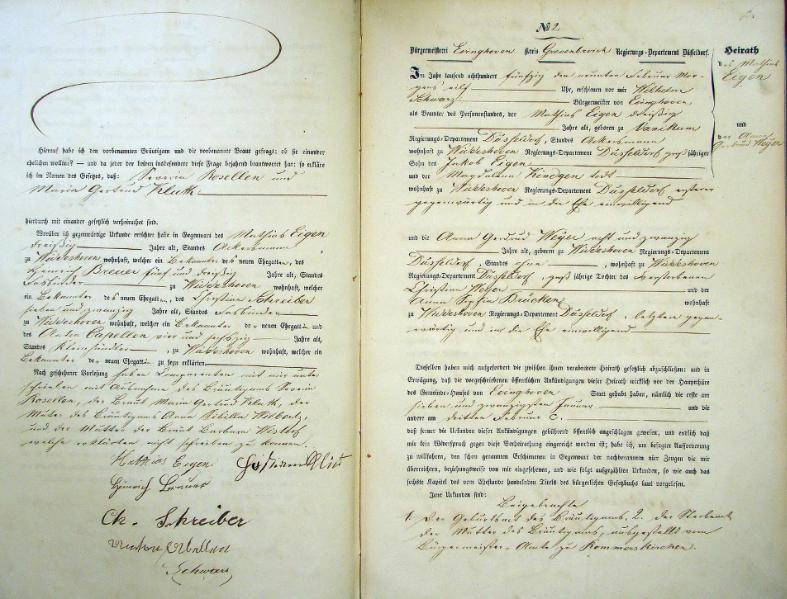 Hierauf habe ich den vorbenannten Bräutigam und die vorbenannte Braut gefragt: ob sie einander
ehelichen wollen? — und da jeder der beiden insbesondere diese Frage bejahend beantwortet hat: so erkläre
ich im Namen des Gesetzes, daß: Severin Rosellen und
Maria Gertrud Kluth
hierdurch mit einander gesetzlich verheirathet sind.
Worüber ich gegenwärtige Urkunde errichtet habe in Gegenwart des Mathias Eigen
dreißig Jahre alt, Standes Ackersmann
zu wohnhaft, welcher ein Bekannter des neuen Ehegatten, des
Heinrich Breuer fünf und dreißig Jahre alt, Standes
zu wohnhaft, welcher
ein Bekannter des neuen Ehegatten, des Christian Schreiber
sieben und zwanzig Jahre alt, Standes
zu wohnhaft, welcher ein Bekannter de neuen Ehegatten und
des Capellen vier und Jahre alt,
Standes zu wohnhaft, welcher ein
Bekannter de neuen Ehegatten zu seyn erklärten
Nach geschehener Vorlesung haben Comparenten mit mir unter
schrieben mit Ausnahme des Bräutigams Severin
Rosellen, der Braut Maria Gertrud Kluth, der
Mutter des Bräutigams Anna
und der Mutter der Braut Barbara
welche erklärten nicht schreiben zu können.
Mathias Eigen
Heinrich Breuer
Ch. Schreiber
Schwarz
No 2
Bürgermeisterei Evinghoven Kreis Grevenbroich Regierungs-Departement Düsseldorf.
Im Jahr tausend achthundert fünfzig den neunten Februar Mor-
gens eilf Uhr, erschienen vor mir Wilhelm
Schwarz Bürgermeister von Evinghoven
als Beamter des Personenstandes, der Mathias Eigen dreißig
Jahre alt, geboren zu
Regierungs-Departement Düsseldorf, Standes Ackersmann
wohnhaft zu Regierungs-Departement Düsseldorf großjähriger
Sohn des Jakob Eigen
und der Magdalena todt
wohnhaft zu Regierungs-Departement Düsseldorf ersterer
gegenwärtig und in die Ehe einwilligend
und die Anna Gertrud Weyer acht und zwanzig
Jahre alt, geboren zu Regierungs-Departement
Düsseldorf, Standes wohnhaft zu
Regierungs-Departement Düsseldorf, großjährige Tochter des verstorbenen
Christian Weyer und der
Anna Sophia Brücken wohnhaft
zu Regierungs-Departement Düsseldorf, letztere gegen-
wärtig und in die Ehe einwilligend
Dieselben haben mich aufgefordert die zwischen ihnen verabredete Heirath gesetzlich abzuschließen; und in
Erwägung, daß die vorgeschriebenen öffentlichen Ankündigungen dieser Heirath wirklich vor der Hauptthüre
des Gemeinde-Hauses von Evinghoven Statt gehabt haben, nämlich die erste am
sieben und zwanzigsten Januar und die
andere am dritten Februar c.
daß ferner die Urkunden dieser Ankündigungen gebührend öffentlich angeschlagen gewesen, und endlich daß
mir kein Widerspruch gegen diese Verheirathung eingereicht worden ist; habe ich, um besagter Aufforderung
zu willfahren, den schon genannten Erschienenen in Gegenwart der nachbenannten vier Zeugen die mir
überreichten, beziehungsweise von mir eingesehenen, und wie folgt aufgezählten Urkunden, so wie auch das
sechste Kapitel des vom Ehestande handelnden Titels des bürgerlichen Gesetzbuchs laut vorgelesen.
Jene Urkunden sind:
Beigebrachte
1. Der Geburtsact des Bräutigams, 2. der Sterbeact
der Mutter des Bräutigams, ausgestellt vom
Bürgermeister-Amte zu Rommerskirchen.
Heirath
des Mathias
Eigen
und
der Anna
Gertrud Weyer